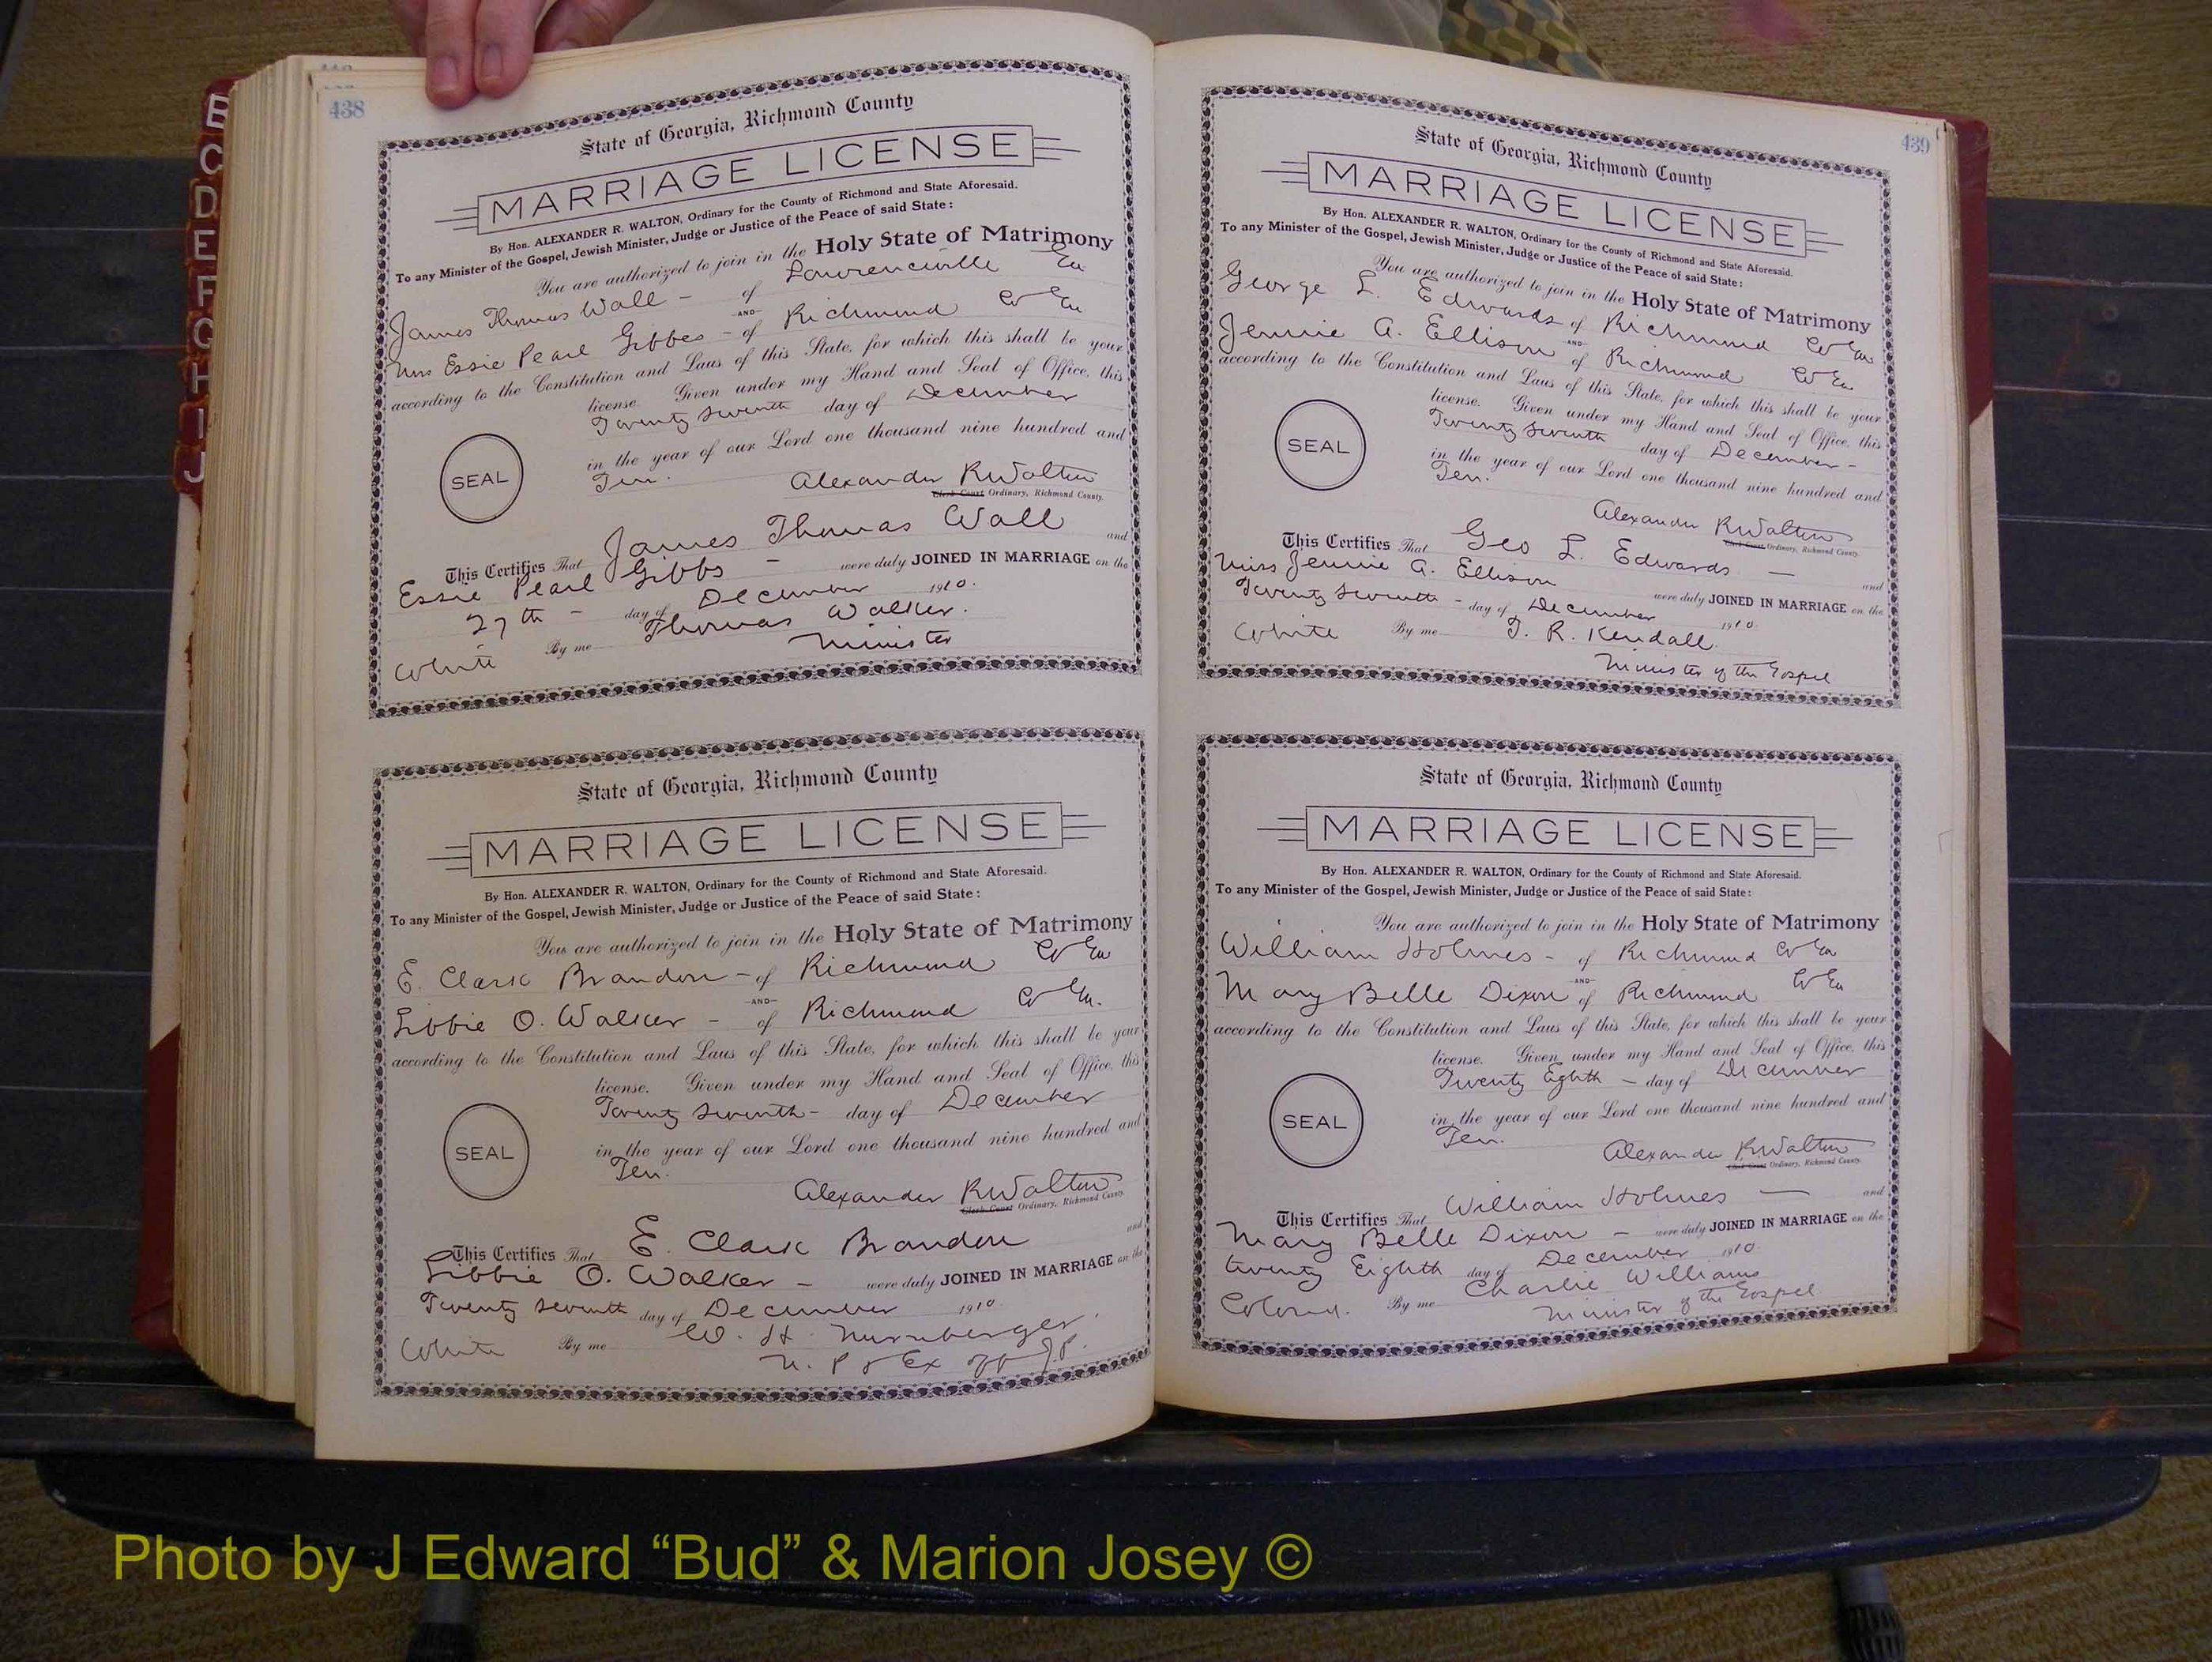 B
C
D
E
F
G
H
I
J
438
State of Georgia, Richmond County
MARRIAGE LICENSE
By Hon. ALEXANDER R. WALTON, Ordinary for the County of Richmond and State Aforesaid.
To any Minister of the Gospel, Jewish Minister, Judge or Justice of the Peace of said State:
You are authorized to join in the Holy State of Matrimony
James Thomas Wall - of Lawrenceville Ga
-AND-
Miss Essie Pearl Gibbes - of Richmond Co Ga
according to the Constitution and Laws of this State, for which this shall be your
license. Given under my Hand and Seal of Office, this
Twenty Seventh day of December
in the year of our Lord one thousand nine hundred and
Ten.
SEAL
Alexander R Walton
Clerk Court Ordinary, Richmond County.
This Certifies That James Thomas Wall and
Essie Pearl Gibbs - were duly JOINED IN MARRIAGE on the
27th - day of December 1910.
White By me Thomas Walker.
Minister
State of Georgia, Richmond County
MARRIAGE LICENSE
By Hon. ALEXANDER R. WALTON, Ordinary for the County of Richmond and State Aforesaid.
To any Minister of the Gospel, Jewish Minister, Judge or Justice of the Peace of said State:
You are authorized to join in the Holy State of Matrimony
E. Clark Brandon - of Richmond Co Ga
-AND-
Libbie O. Walker - of Richmond Co Ga.
according to the Constitution and Laws of this State, for which this shall be your
license. Given under my Hand and Seal of Office, this
Twenty Seventh - day of December
in the year of our Lord one thousand nine hundred and
Ten.
SEAL
Alexander R Walton
Clerk Court Ordinary, Richmond County.
This Certifies That E. Clark Brandon and
Libbie O. Walker - were duly JOINED IN MARRIAGE on the
Twenty Seventh day of December 1910.
White By me W. H. Nurnberger,
N. P & Ex off J.P.
439
State of Georgia, Richmond County
MARRIAGE LICENSE
By Hon. ALEXANDER R. WALTON, Ordinary for the County of Richmond and State Aforesaid.
To any Minister of the Gospel, Jewish Minister, Judge or Justice of the Peace of said State:
You are authorized to join in the Holy State of Matrimony
George L. Edwards of Richmond Co Ga
-AND-
Jennie A. Ellison of Richmond Co Ga.
according to the Constitution and Laws of this State, for which this shall be your
license. Given under my Hand and Seal of Office, this
Twenty Seventh day of December -
in the year of our Lord one thousand nine hundred and
Ten.
SEAL
Alexander R Walton
Clerk Court Ordinary, Richmond County.
This Certifies That Geo L. Edwards - and
Miss Jennie A. Ellison were duly JOINED IN MARRIAGE on the
Twenty Seventh - day of December 1910.
White By me T. R. Kendall.
Minister of the Gospel
State of Georgia, Richmond County
MARRIAGE LICENSE
By Hon. ALEXANDER R. WALTON, Ordinary for the County of Richmond and State Aforesaid.
To any Minister of the Gospel, Jewish Minister, Judge or Justice of the Peace of said State:
You are authorized to join in the Holy State of Matrimony
William Holmes - of Richmond Co Ga
-AND-
Mary Belle Dixon of Richmond Co Ga
according to the Constitution and Laws of this State, for which this shall be your
license. Given under my Hand and Seal of Office, this
Twenty Eighth - day of December
in the year of our Lord one thousand nine hundred and
Ten.
SEAL
Alexander R Walton
Clerk Court Ordinary, Richmond County.
This Certifies That William Holmes - and
Mary Belle Dixon - were duly JOINED IN MARRIAGE on the
twenty Eighth day of December 1910.
Colored. By me Charlie Williams
Minister of the Gospel
Photo by J Edward “Bud” & Marion Josey ©